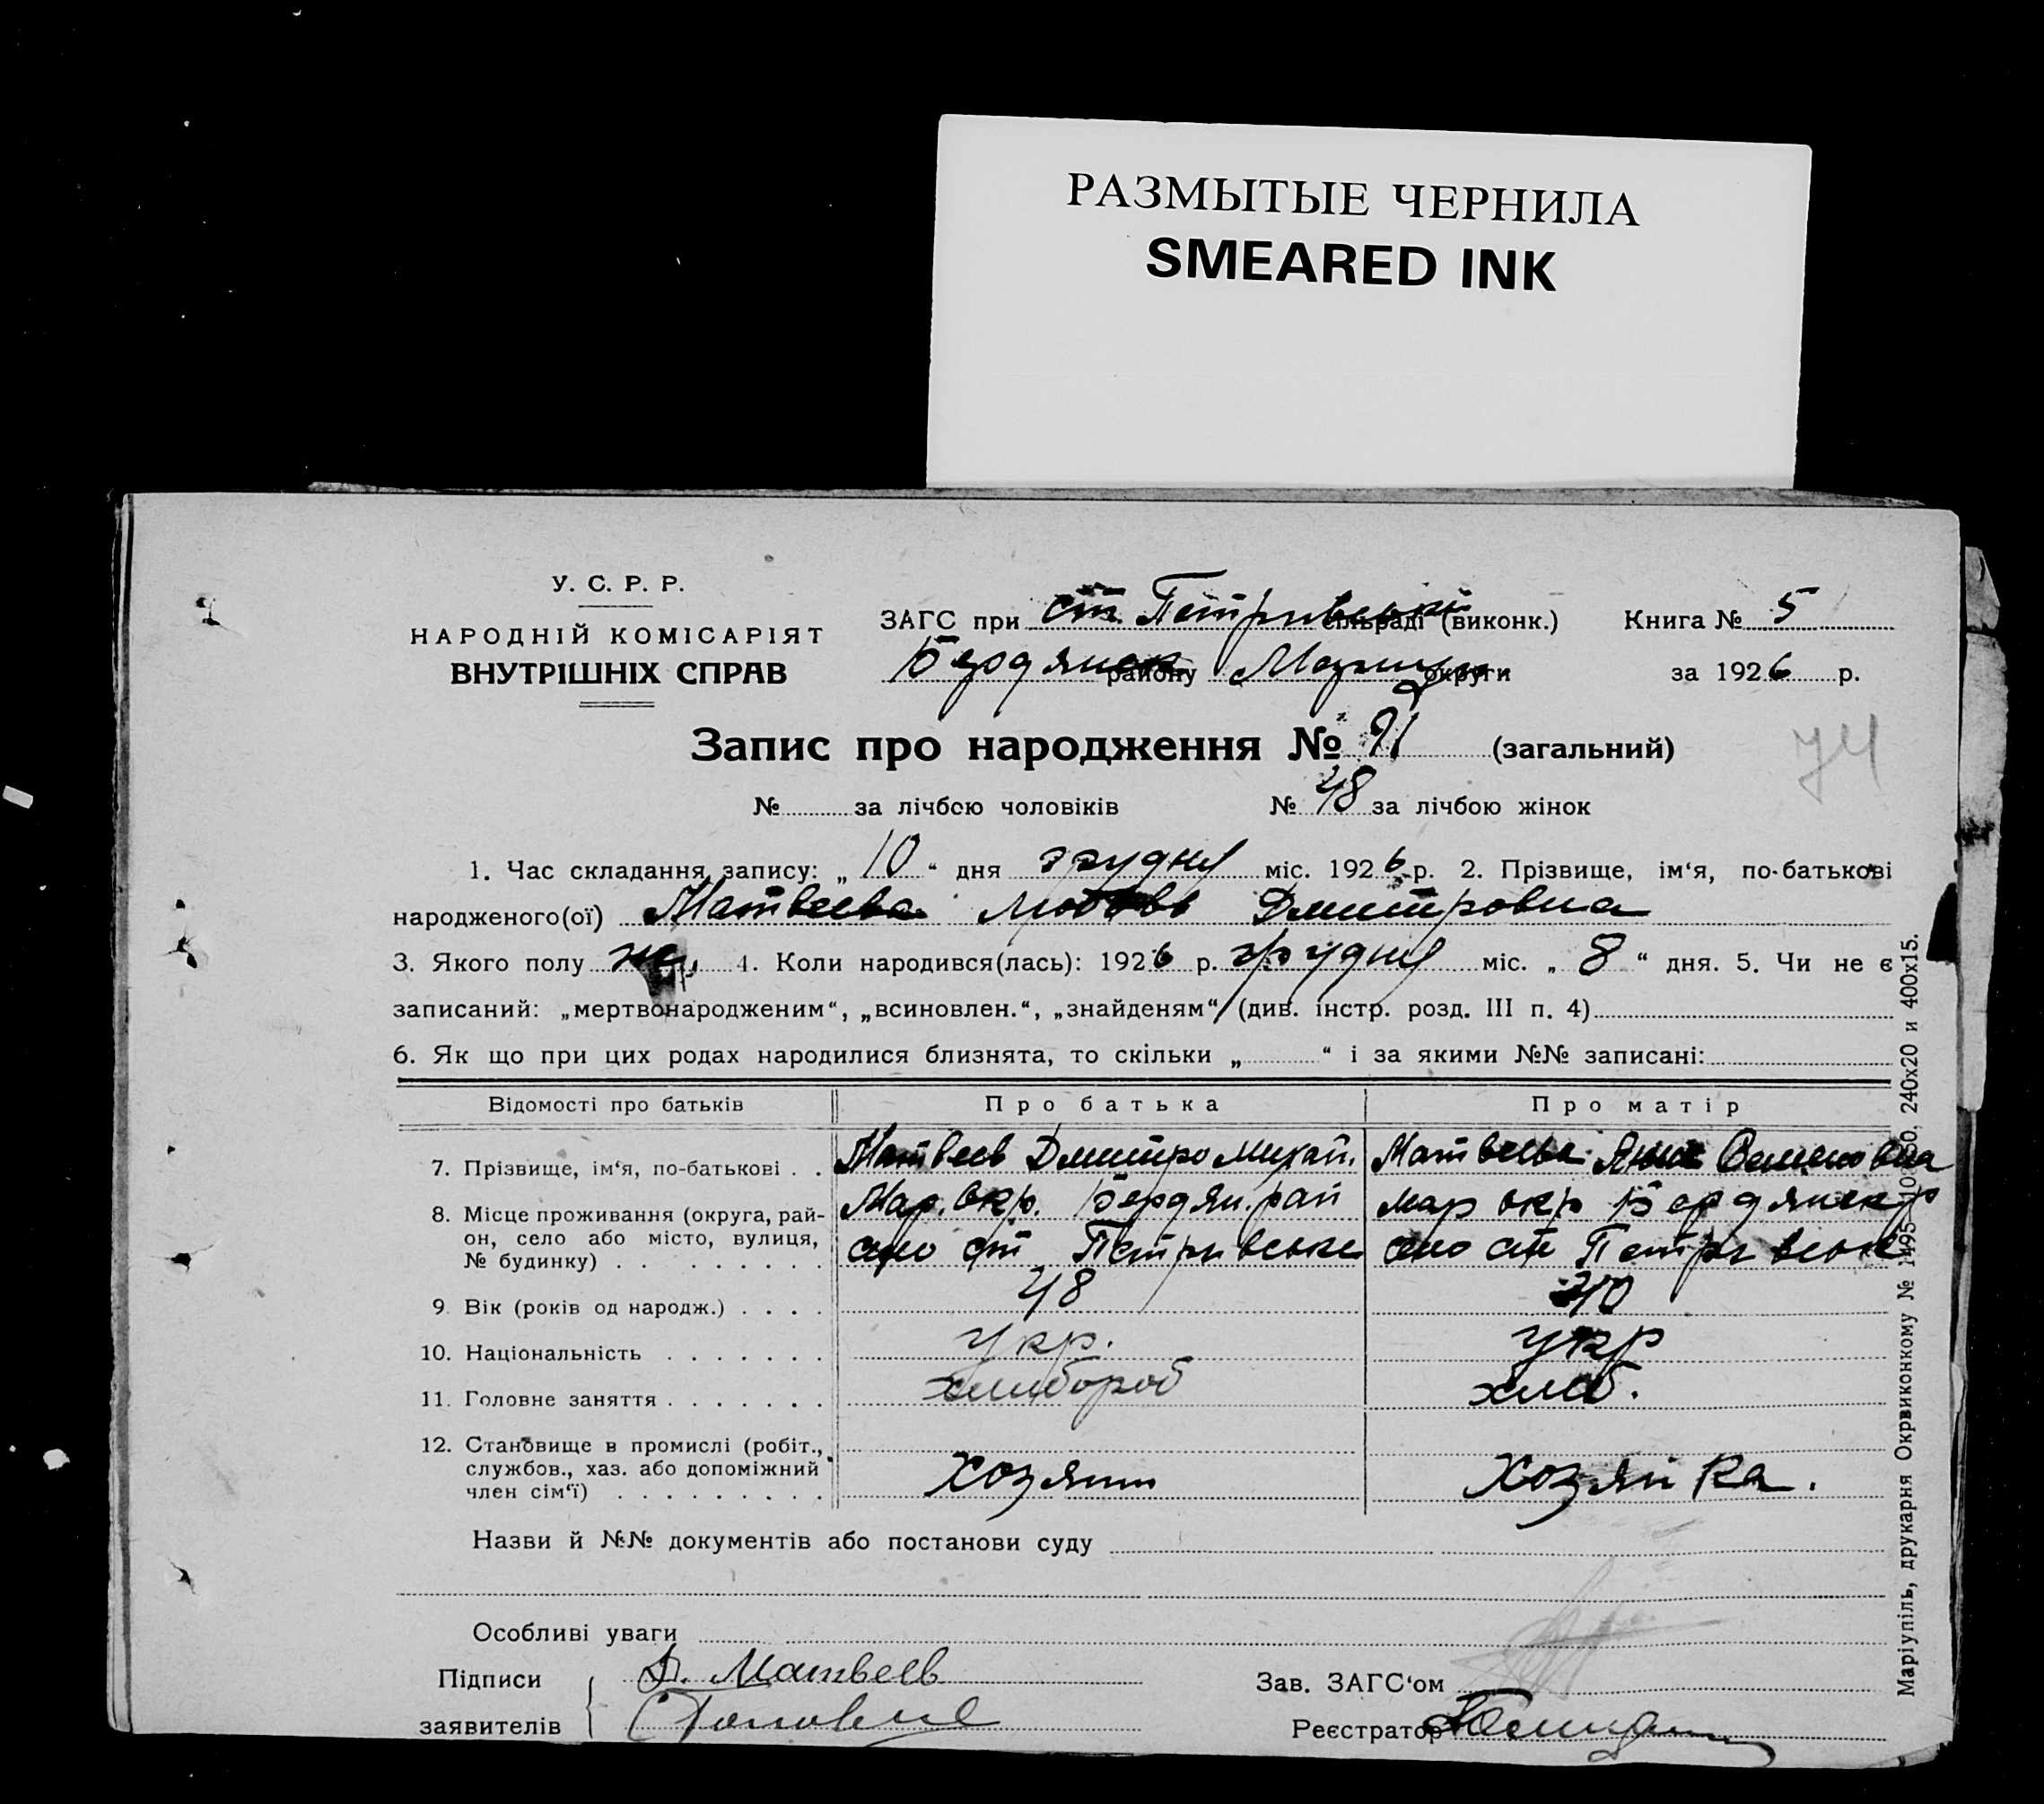 РАЗМЫТЫЕ ЧЕРНИЛА
SMEARED INK
У. С. Р. Р.
НАРОДНІЙ КОМІСАРІЯТ
ВНУТРІШНІХ СПРАВ
ЗАГС при ст. Петрівські сільраді (виконк.)
Книга № 5
Бердянск району Маріуп округи
за 1926 р.
Запис про народження № 91 (загальний)
74
№ за лічбою чоловіків № 48 за лічбою жінок
1. Час складання запису: „ 10 “ дня грудня міс. 1926 р. 2. Прізвище, ім‘я, по-батькові
народженого(ої) Матвеева Любовь Дмитровна
3. Якого полу ж. 4. Коли народився(лась): 1926 р. грудня міс. „ 8 “ дня. 5. Чи не є
записаний: „мертвонародженим“, „всиновлен.“, „знайденям“ (див. інстр. розд. III п. 4)
6. Як що при цих родах народилися близнята, то скільки „ “ і за якими №№ записані:
Відомості про батьків Про батька Про матір
7. Прізвище, ім‘я, по-батькові . . Матвеев Дмитро Михай. Матвеева Анна Семеновна
8. Місце проживання (округа, рай- Мар. окр. Бердян. рай мар окр Бердянск р
он, село або місто, вулиця, село ст Петрівське село ст Петрівськ
№ будинку)
9. Вік (років од народж.) . . . . 48 40
10. Національність . . . . . . . укр. укр
11. Головне заняття . . . . . . . хлибороб хлиб.
12. Становище в промислі (робіт.,
службов., хаз. або допоміжний Хозяин Хозяйка.
член сім‘ї) . . . . . . . . .
Назви й №№ документів або постанови суду
Особливі уваги
Підписи Д. Матвеев Зав. ЗАГС‘ом
заявителів Реєстратор
Маріупіль, друкарня Окрвиконкому № 1495—10850. 240х20 и 400х15.